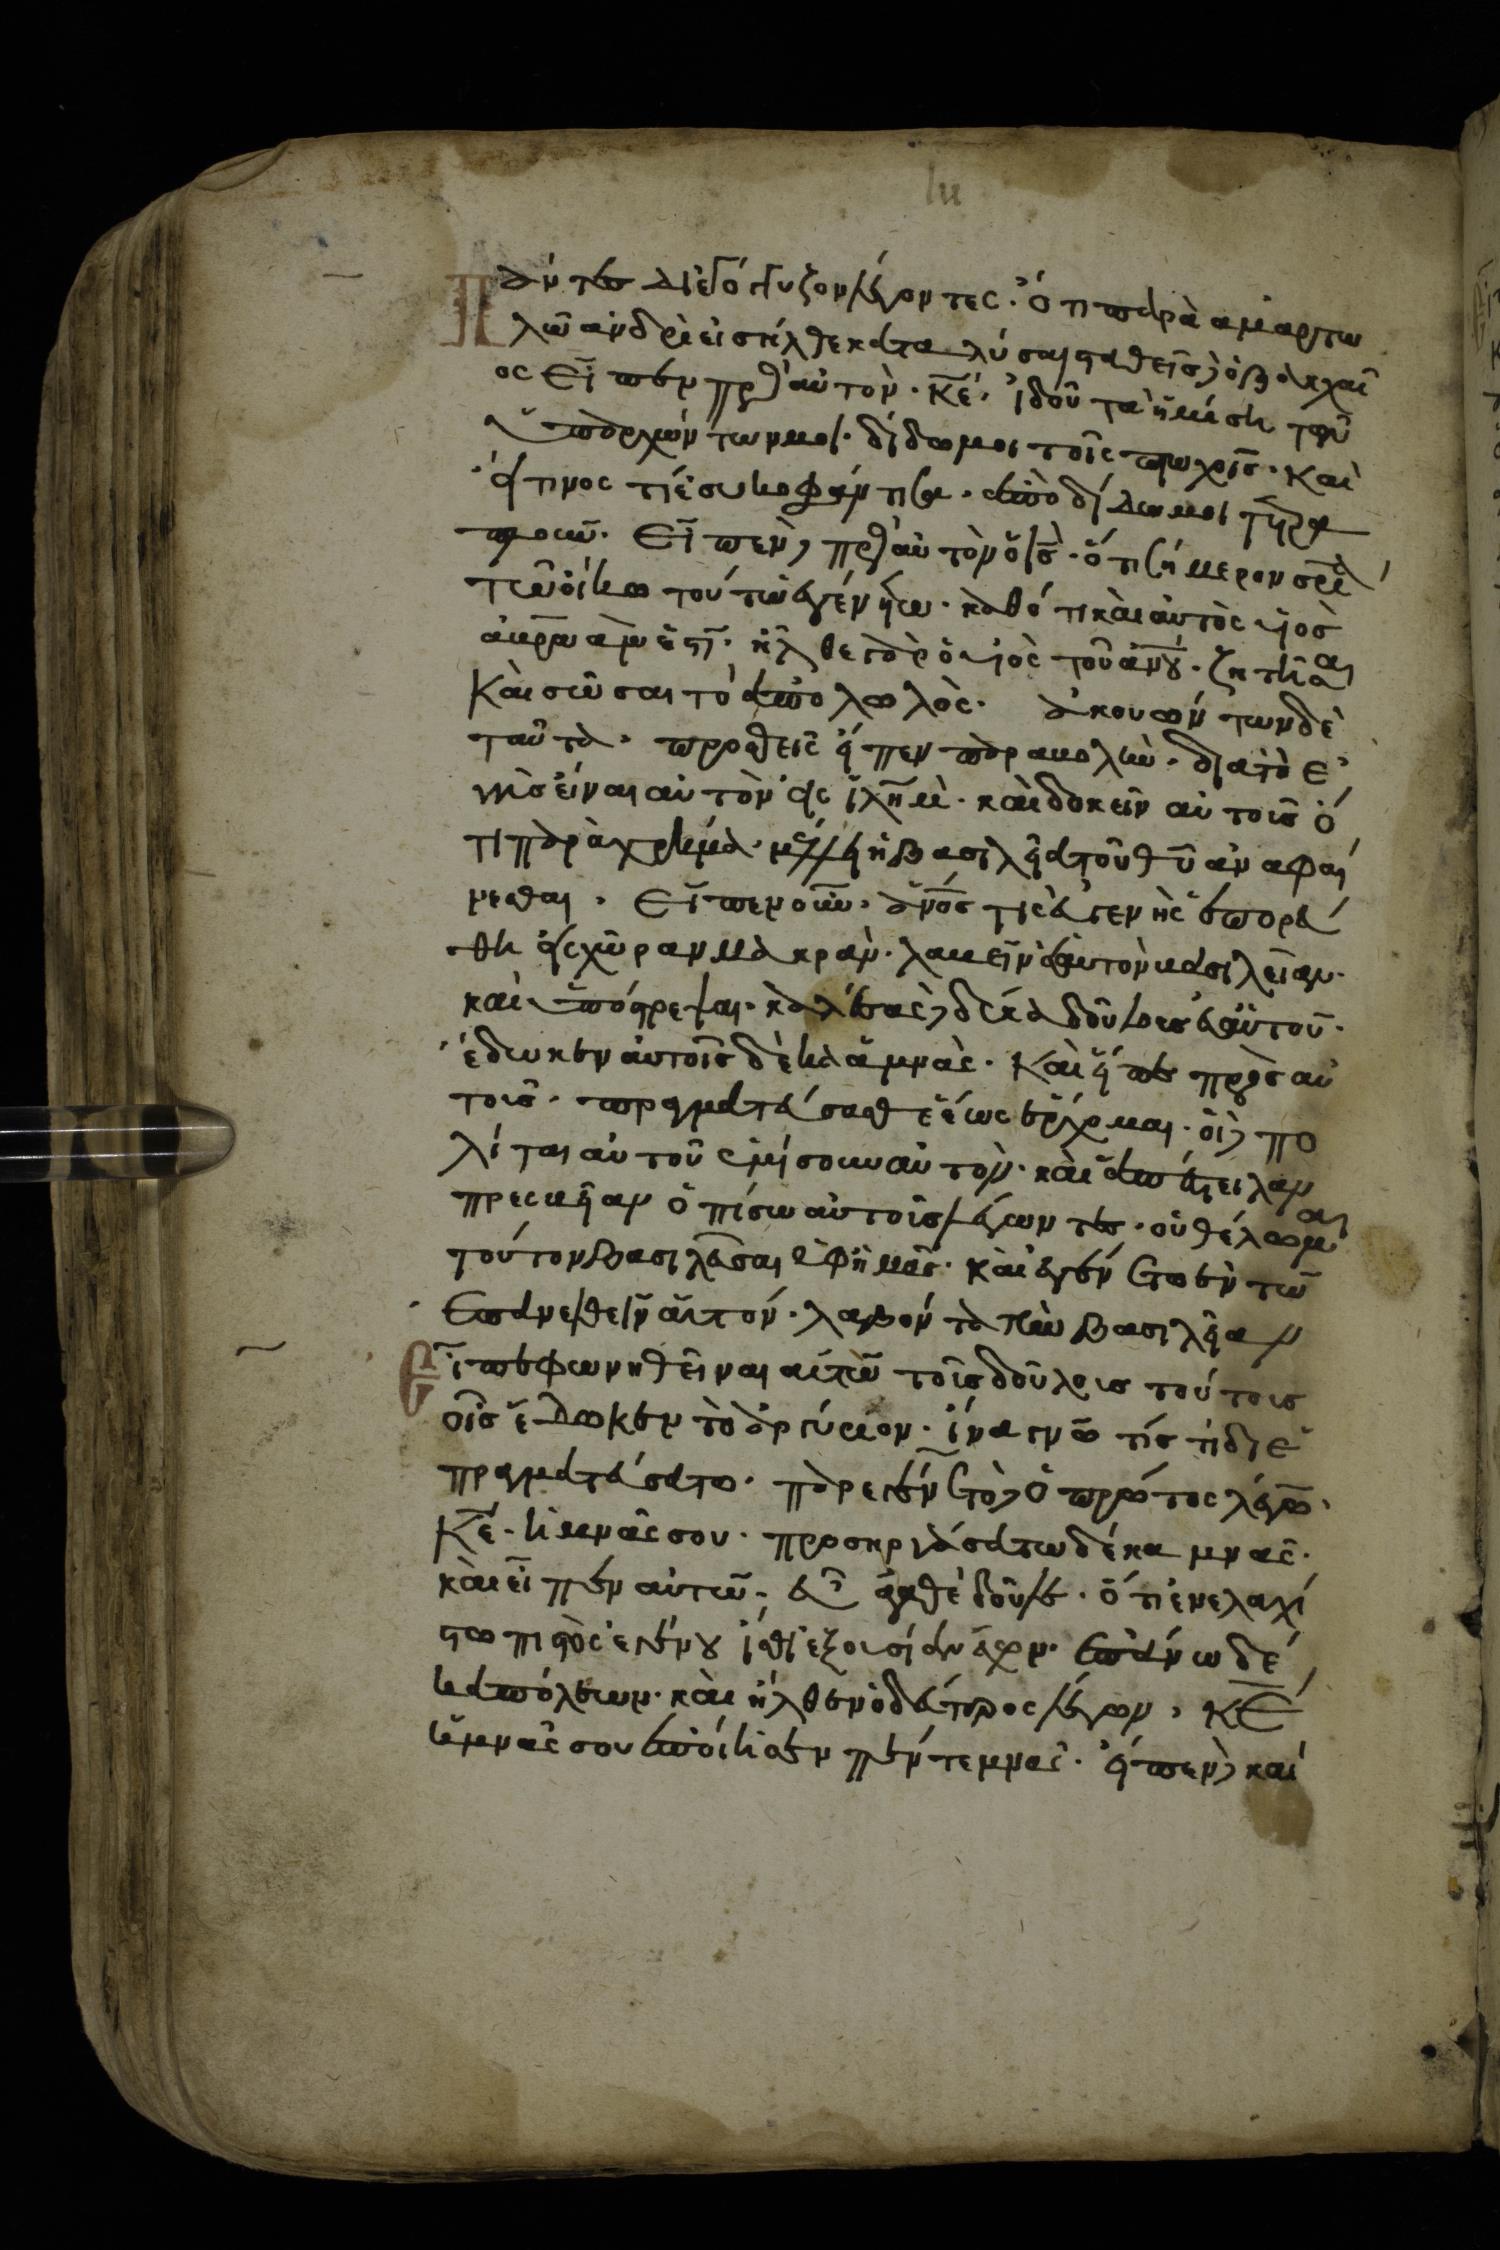 Πάντες διεγόγγυζον λέγοντες· ὅτι παρὰ ἁμαρτω
λῶ ἀνδρὶ εἰσῆλθε καταλύσαι σταθεὶς δὲ ὁ ζακχαῖ
ος εἶπεν πρὸς αὐτὸν· κε̄· ἰδοὺ τὰ ἡμίση τῶν
ὑπαρχόντων μοι· δίδωμοι τοῖς πτωχοῖς· καὶ
εἴ τινος τι ἐσυκοφάντησα· ἀποδίδωμοι τετρα
πλοῦν· εἶπεν δὲ πρὸς αὐτὸν ὁ ις̄· ὅτι σήμερον σρ̄ία
τῶ οἴκω τούτω ἐγένετω· καθότι καὶ αὐτὸς υἱὸς
ἀβραὰμ ἐστῖ· ἦλθε γὰρ ὁ υἱὸς τοῦ ἀνοῡ· ζητῆσαι
καὶ σῶσαι τὸ ἀπολωλὸς· ἀκουόντων δὲ
ταῦτα· προσθεὶς εἶπεν παραβολὴν· διὰ τὸ ἐγ
γὺς εἶναι αὐτὸν εἰς ἰλη̄μ· καὶ δοκεῖν αὐτοῖς ὅ
τι παραχρῆμα· μέλλει ἡ βασιλεία τοῦ θῡ ἀναφαί
νεσθαι· εἶπεν οὖν· ἄνος̄ τις εὐγενὴς ἐπορεύ
θη εἰς χῶραν μακρὰν· λαβεῖν ἑαυτὸν βασιλείαν·
καὶ ὑποστρέψαι· καλέσας δὲ δέκα δούλους ἑαυτοῦ·
ἔδωκεν αὐτοῖς δέκα μνὰς· καὶ εἶπε πρὸς αὐ
τοῖς· πραγματεύσασθε ἕως ἔρχομαι· οἱ δὲ πο
λίται αὐτοῦ ἐμίσουν αὐτὸν· καὶ ἀπέστειλαν
πρεσβείαν ὀπίσω αὐτοῖς λέγωντες· οὐ θέλωμαι
τοῦτον βασιλεῦσαι ἐφ ἡμᾶς· καὶ ἐγένετο ἐν τῶ
ἐπανελθεῖν αὐτόν· λαβόντα τὴν βασιλείαν
εἶπε φωνηθεῖναι αὐτῶ τοῖς δούλοις τούτοις
οἷς ἔδωκεν τὸ ἀργύριον· ἵνα γνῶ τίς τί διε
πραγματεύσατω· παρεγένετο δὲ ὁ πρῶτος λέγων·
κε̄· ἡ μνᾶς σου· προσηργάσατω δέκα μνᾶς·
καὶ εἶπεν αὐτῶ· εὖ ἀγαθὲ δοῦλε· ὅτι ἐν ἐλαχί
στω πιστὸς ἐγένου ἴσθι ἐξουσίαν ἔχων· ἐπάνω δέ
κα πόλεων· καὶ ἦλθεν ὁ δεύτερος λέγων· κε̄
ἡ μνᾶς σου ἐποίησεν πέντε μνᾶς· εἶπεν δὲ καὶ